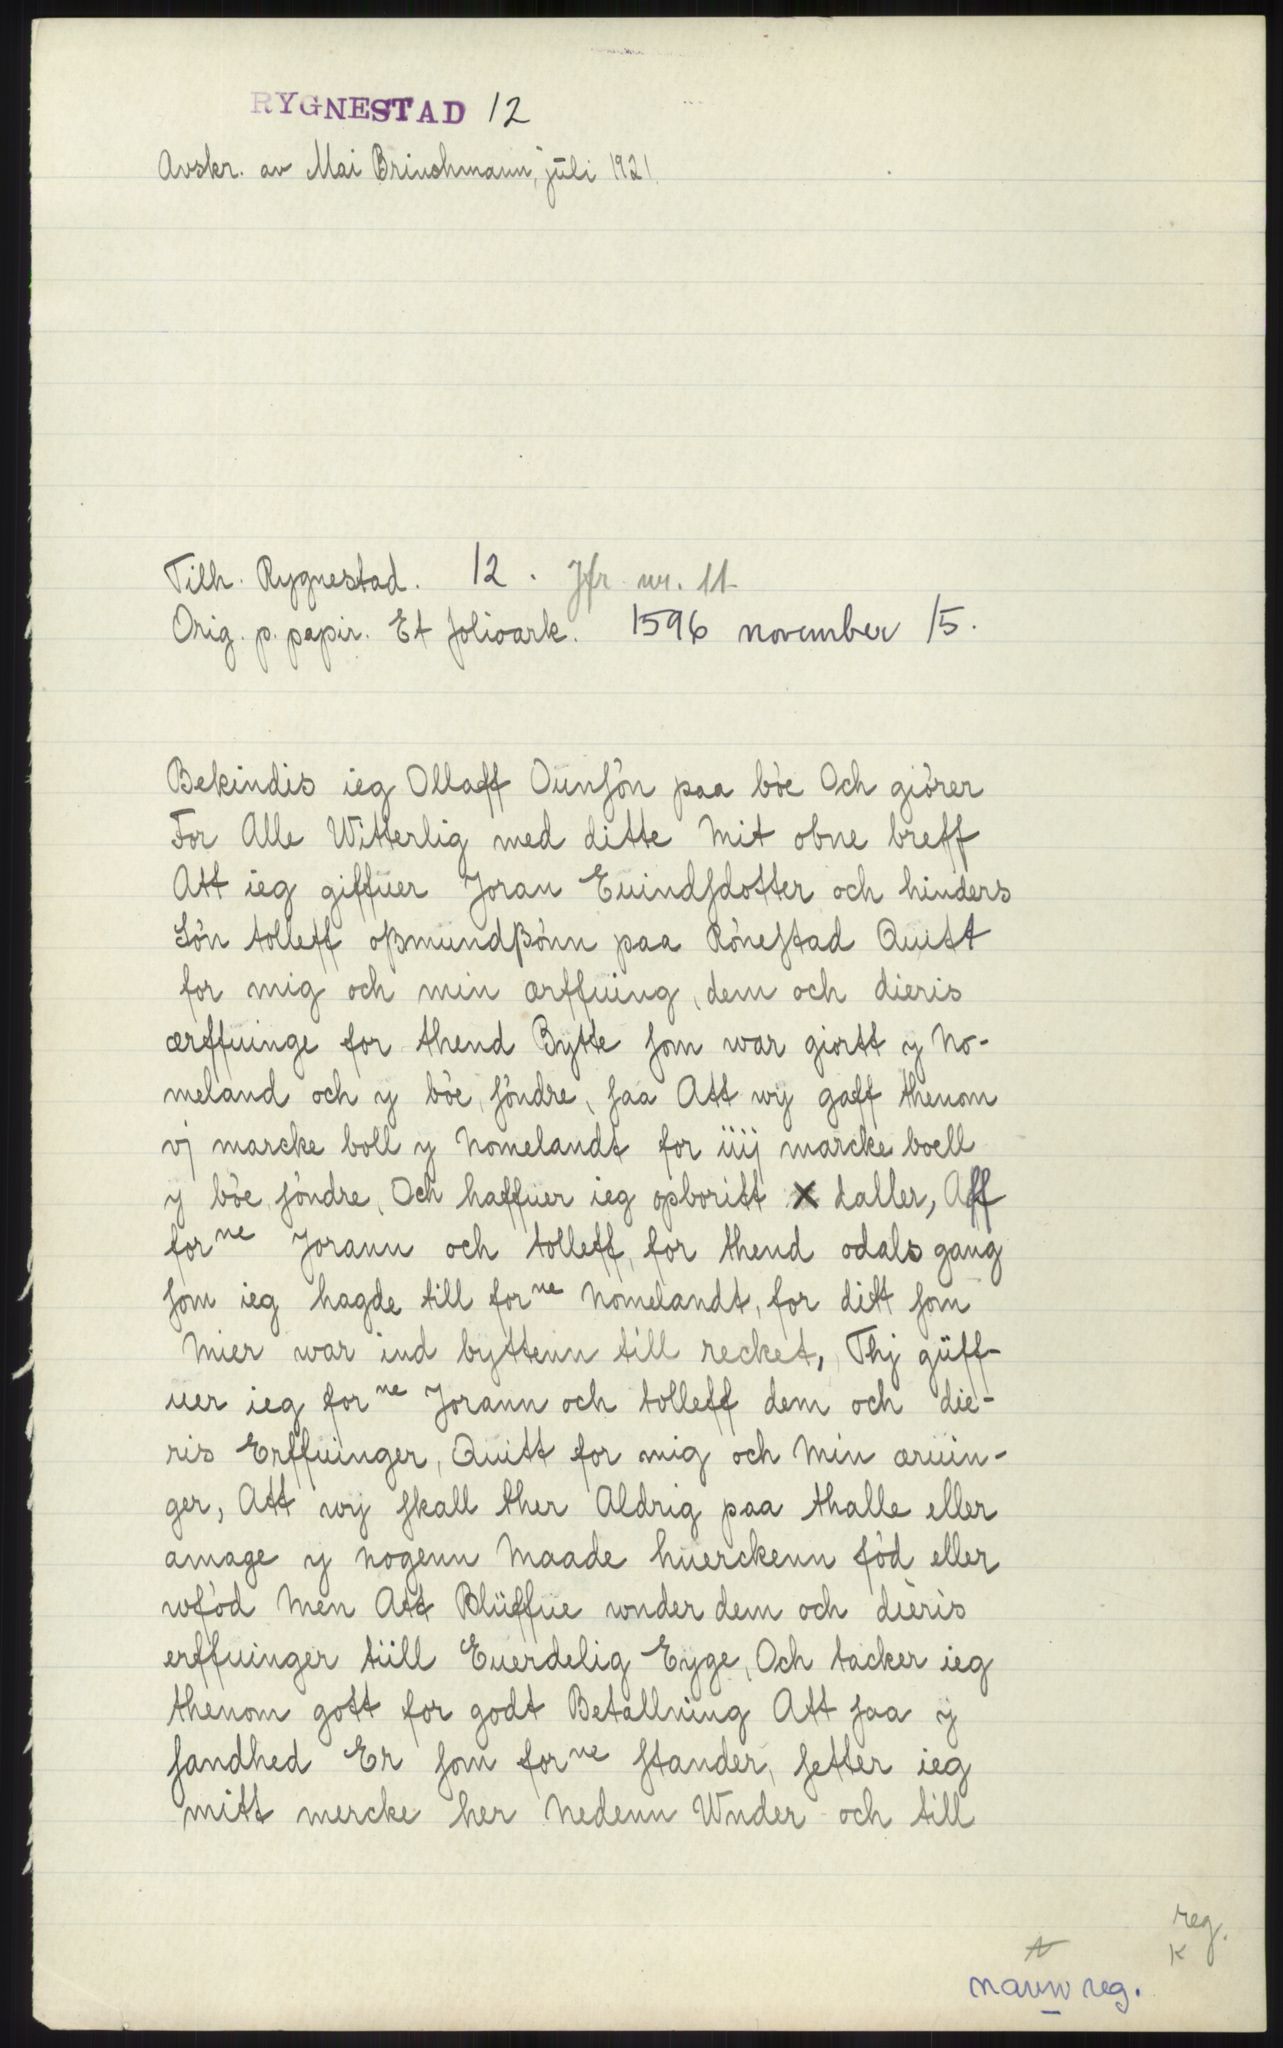 RYGNESTAD 12
Avskr. av Mai Brinchmann, juli 1921.
Tilh. Rygnestad. 12. Jfr. nr. 11
Orig. p. papir. Et folioark. 1596 november 15.
Bekindis ieg Ollaff Ounſön paa böe Och giörer
For Alle Witterlig med ditte Mit obne breff
Att ieg giffuer Joran Euindſdotter och hinders
Sön tolleff oßmundßönn paa Röneſtad Quitt
for mig och min ærffuing, dem och dieris
ærffuinge for thend Bytte ſom war giortt y No-
meland och y böe ſöndre, ſaa Att wy gaff thenom
vj marcke boll y Nomelandt for iiij marcke boell
y böe ſöndre, Och haffuer ieg opboritt X daller, Aff
forne Jorann och tolleff, for thend odals gang
ſom ieg hagde till forne Nomelandt, for ditt ſom
Mier war ind byttenn till recket, Thj güff-
uer ieg forne Jorann och tolleff dem och die-
ris Erffuinger, Quitt for mig och Min æruin-
ger, Att wy ſkall ther Aldrig paa thalle eller
amage y nogenn Maade huerckenn föd eller
wföd Men Att Blüffue wnder dem och dieris
erffuinger tüll Euerdelig Eyge, Och tacker ieg
thenom gott for godt Betallning Att ſaa y
ſandhed Er ſom forne ſtander, ſetter ieg
mitt mercke her Nedenn Wnder och till
reg.
K
navnreg.